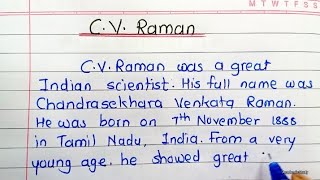 M T W T F S S
C.V. Raman
C.V. Raman was a great
Indian scientist. His full name was
Chandrasekhara Venkata Raman.
He was born on 7th November 1888
in Tamil Nadu, India. From a very
young age. he showed great